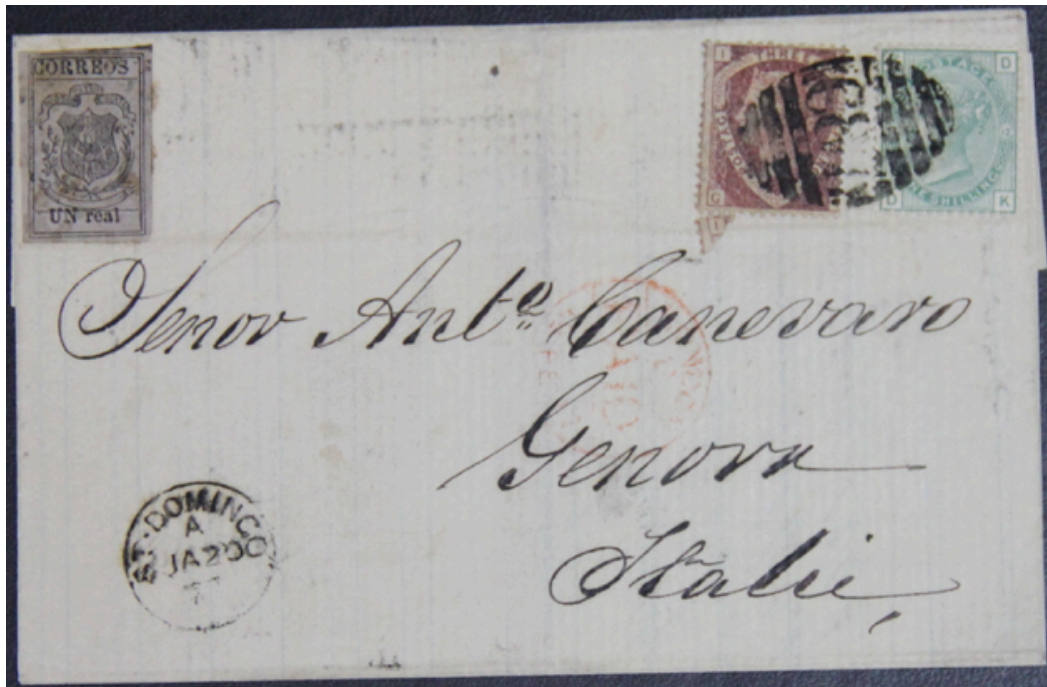 CORREOS
UN real
I THREE
POSTAGE
G
I
POSTAGE D
ONE SHILLING
D K
Senor Anto Canevaro
Genova
Italie,
ST. DOMINGO
A
JA 20